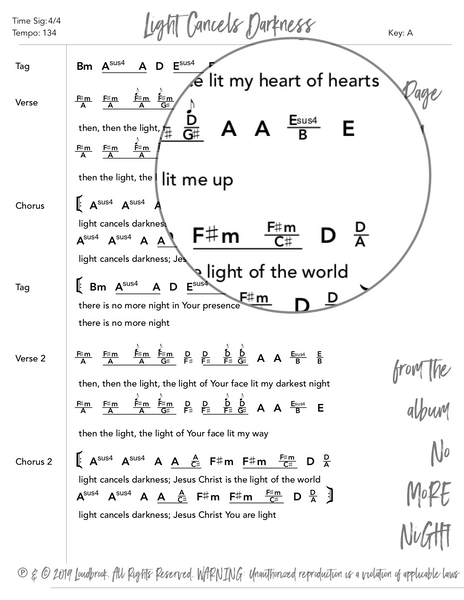 Time Sig:4/4
Light Cancels Darkness
Tempo: 134
Key: A
Tag
Bm Asus4 A D Esus4
Verse
Page
F♯m/A F♯m/A F♯m/A F♯m/G♯
then, then the light,
F♯m/A F♯m/A F♯m/A
then the light, the
Chorus
[ Asus4 Asus4 A
light cancels darkness
Asus4 Asus4 A A
light cancels darkness; Jes
e lit my heart of hearts
D/G♯ A A Esus4/B E
lit me up
F♯m F♯m/C♯ D D/A
light of the world
F♯m D D
Tag
[ Bm Asus4 A D Esus4
there is no more night in Your presence
there is no more night
Verse 2
F♯m/A F♯m/A F♯m/A F♯m/G♯ D/F♯ D/F♯ D/F♯ D/G♯ A A Esus4/B E/B
then, then the light, the light of Your face lit my darkest night
F♯m/A F♯m/A F♯m/A F♯m/G♯ D/F♯ D/F♯ D/F♯ D/G♯ A A Esus4/B E
then the light, the light of Your face lit my way
Chorus 2
[ Asus4 Asus4 A A A/C♯ F♯m F♯m F♯m/C♯ D D/A
light cancels darkness; Jesus Christ is the light of the world
Asus4 Asus4 A A A/C♯ F♯m F♯m F♯m/C♯ D D/A ]
light cancels darkness; Jesus Christ You are light
from the
album
No
MoRE
NiGHT
℗ & © 2019 Loudbrook. All Rights Reserved. WARNING: Unauthorized reproduction is a violation of applicable laws.